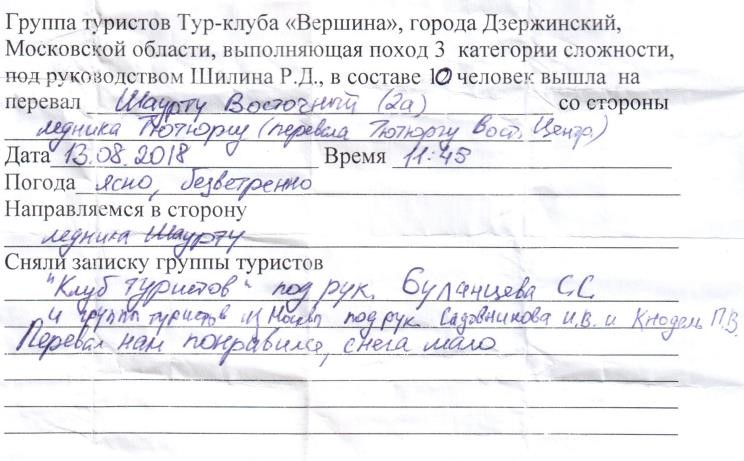 Группа туристов Тур-клуба «Вершина», города Дзержинский,
Московской области, выполняющая поход 3 категории сложности,
под руководством Шилина Р.Д., в составе 10 человек вышла на
перевал Шаурту Восточный (2а) со стороны
ледника Тютюргу (перевала Тютюргу Вост. Центр.)
Дата 13.08.2018 Время 11:45
Погода ясно, безветренно
Направляемся в сторону
ледника Шаурту
Сняли записку группы туристов
"Клуб туристов" под рук. Буланцева С.С.
и групп туристов из Москвы под рук. Садовникова И.В. и Кнодель П.В.
Перевал нам понравился, снега мало